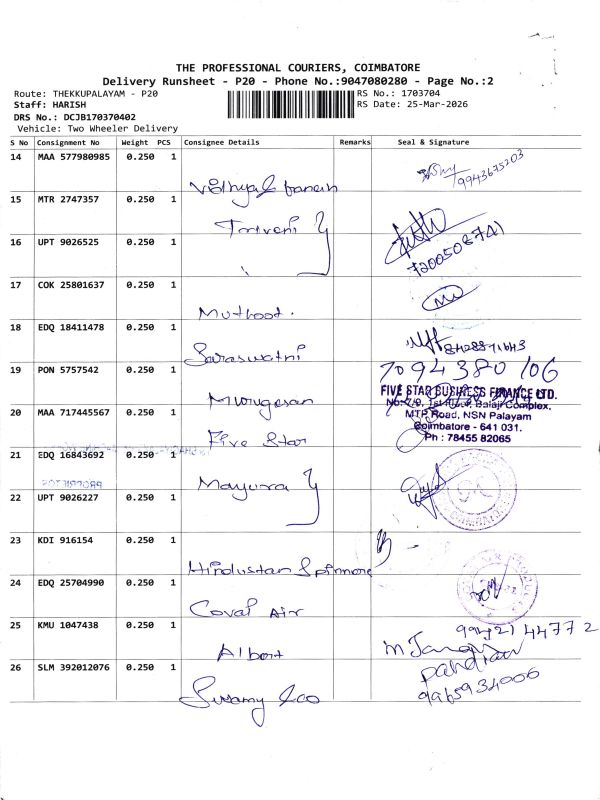 THE PROFESSIONAL COURIERS, COIMBATORE
Delivery Runsheet - P20 - Phone No.:9047080280 - Page No.:2
Route: THEKKUPALAYAM - P20
RS No.: 1703704
Staff: HARISH
RS Date: 25-Mar-2026
DRS No.: DCJB170370402
Vehicle: Two Wheeler Delivery
S No Consignment No Weight PCS Consignee Details Remarks Seal & Signature
14 MAA 577980985 0.250 1
9943675203
15 MTR 2747357 0.250 1 Triveni
16 UPT 9026525 0.250 1
7200508741
17 COK 25801637 0.250 1 Muthoot.
18 EDQ 18411478 0.250 1 Saraswathi
19 PON 5757542 0.250 1 Murugesan
7094380106
FIVE STAR BUSINESS FINANCE LTD.
No:7/9, 1st Floor, Balaji Complex,
MTP Road, NSN Palayam
Coimbatore - 641 031.
Ph : 78455 82065
20 MAA 717445567 0.250 1 Five Star
21 EDQ 16843692 0.250 1 Mayura
22 UPT 9026227 0.250 1
23 KDI 916154 0.250 1 Hindustan
24 EDQ 25704990 0.250 1 Coval Air
25 KMU 1047438 0.250 1 Albert
9942144772
26 SLM 392012076 0.250 1 Swamy & co
pandian
9965934006